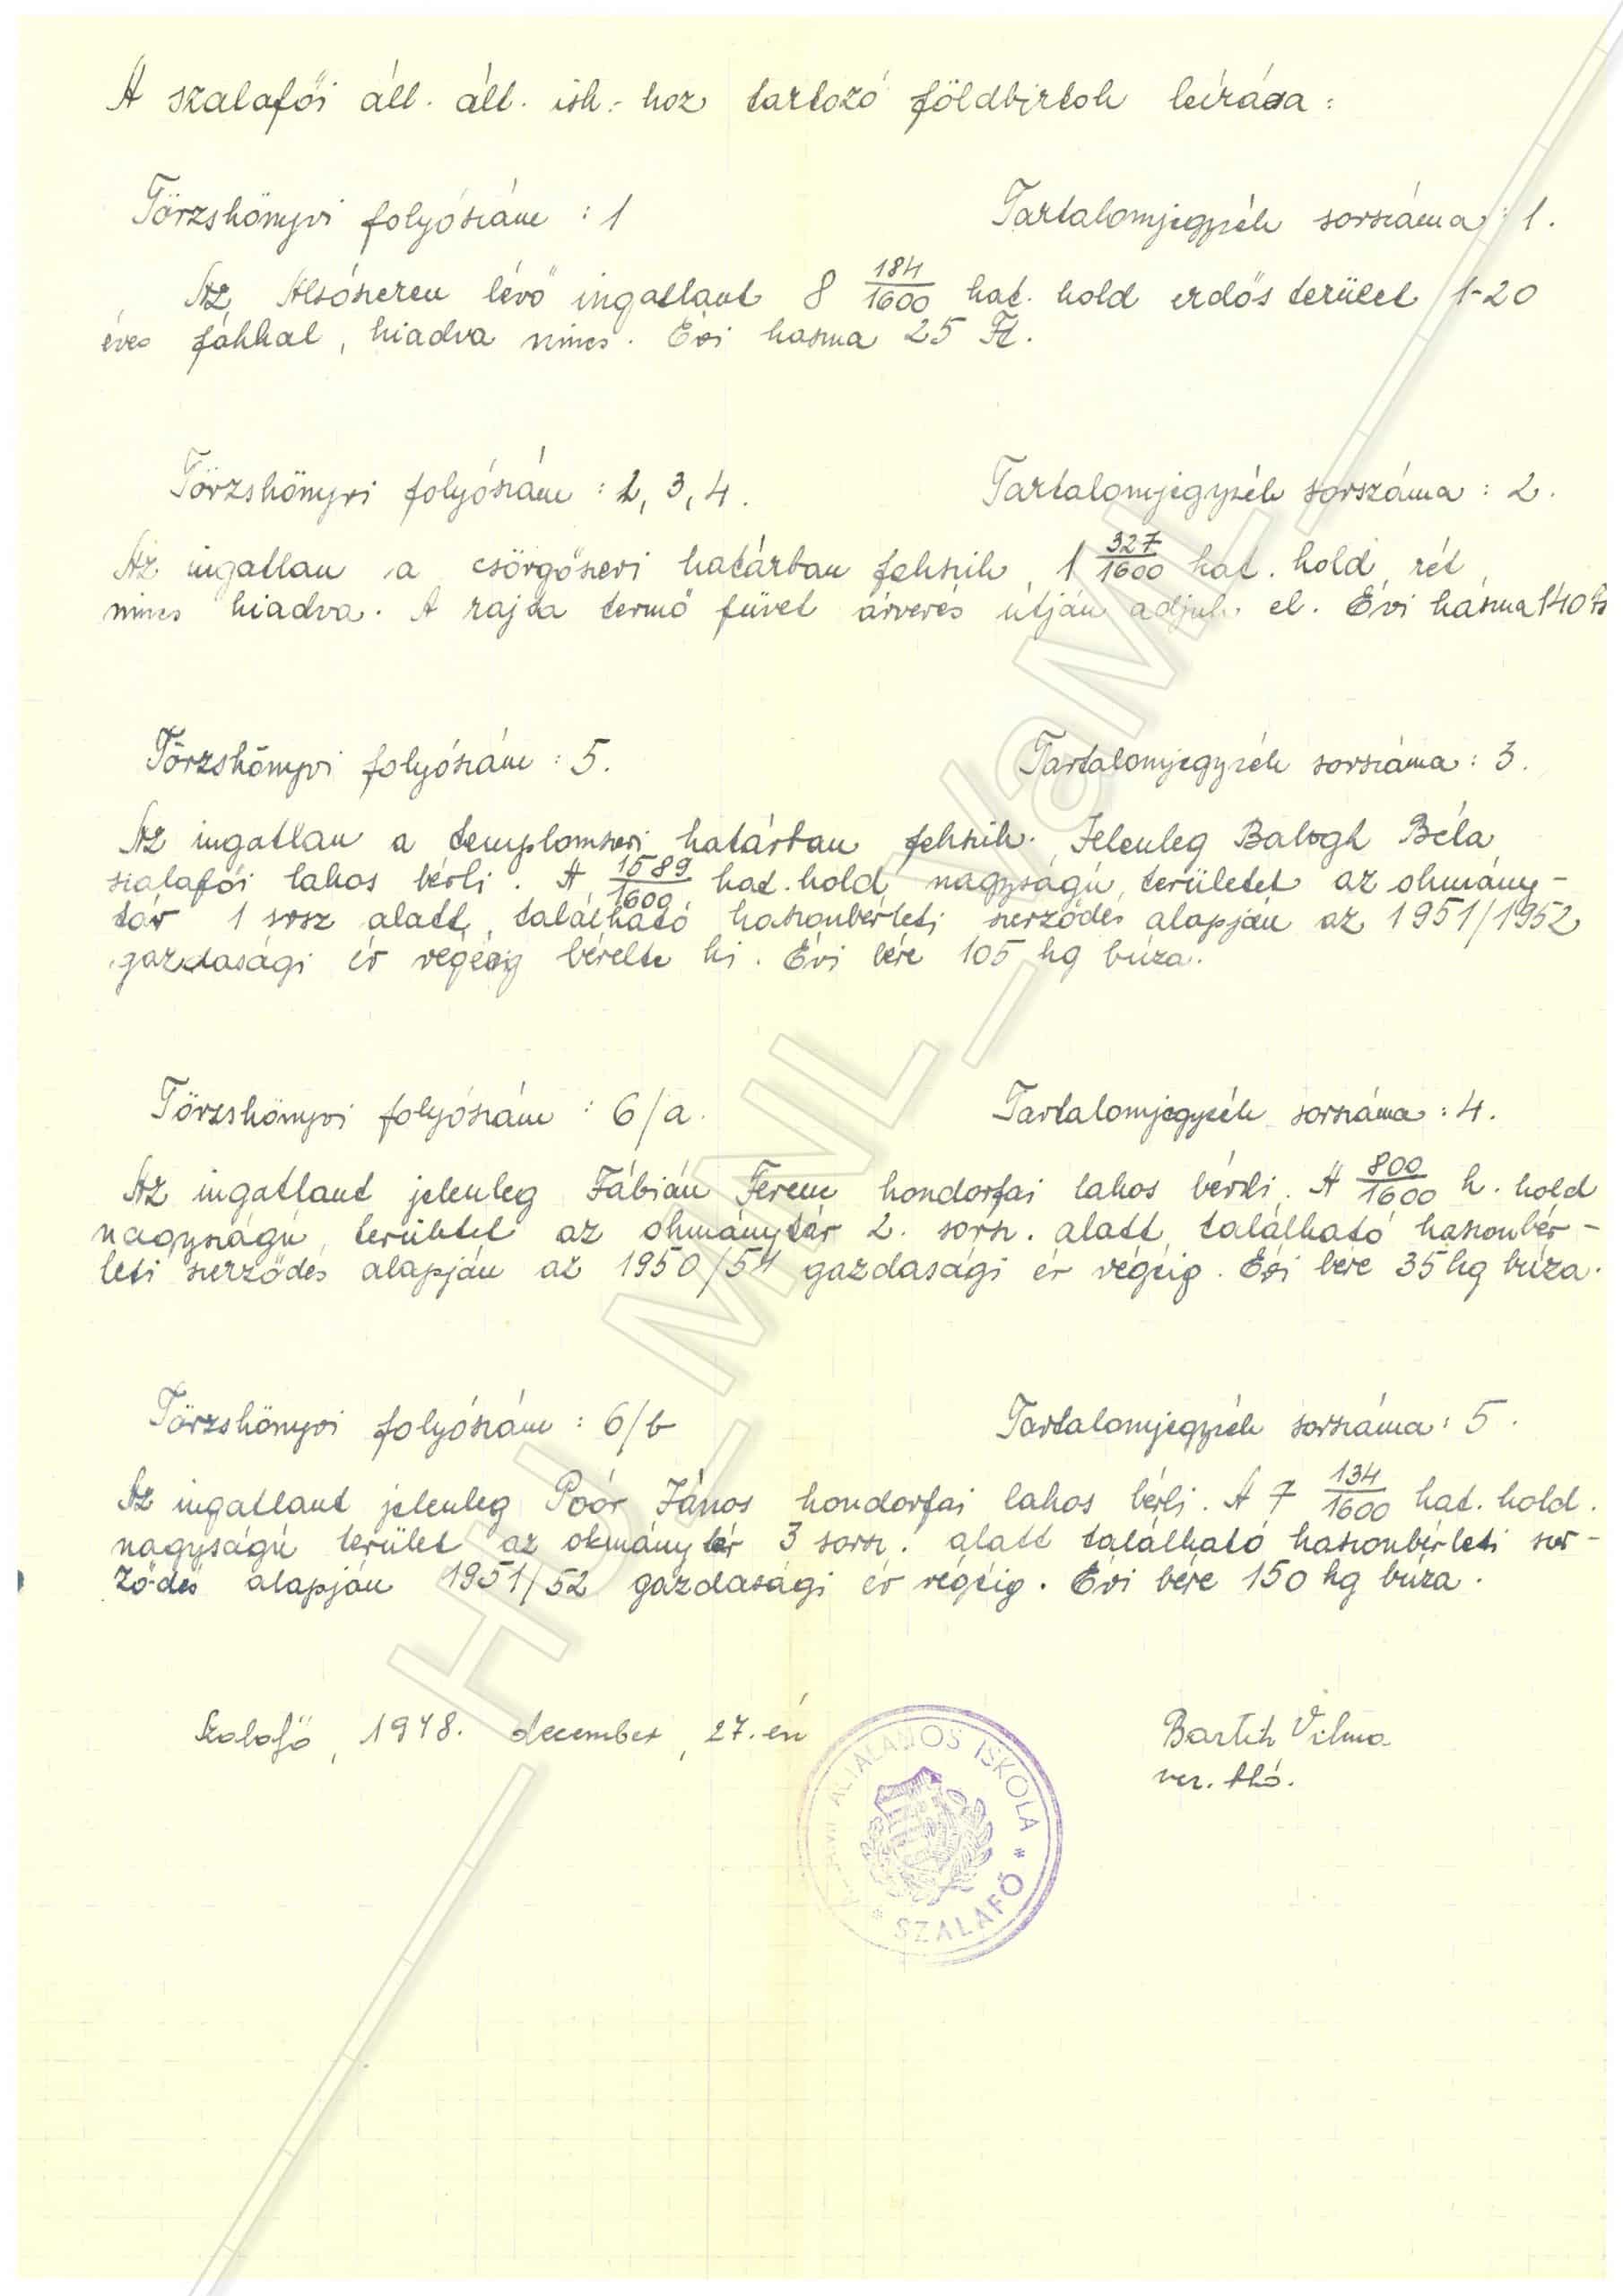 A szalafői áll. ált. isk.-hoz tartozó földbirtok leírása:
Törzskönyvi folyószám: 1 Tartalomjegyzék sorszáma: 1.
Az Alsószeren lévő ingatlant 8 184/1600 kat. hold erdős terület 1-20
éves fákkal, kiadva nincs. Évi haszna 25 Ft.
Törzskönyvi folyószám: 2, 3, 4. Tartalomjegyzék sorszáma: 2.
Az ingatlan a csörgőszeri határban fekszik, 1 327/1600 kat. hold rét,
nincs kiadva. A rajta termő füvet árverés útján adjuk el. Évi haszna 140 Ft
Törzskönyvi folyószám: 5. Tartalomjegyzék sorszáma: 3.
Az ingatlan a templomszeri határban fekszik. Jelenleg Balogh Béla
szalafői lakos bérli. A 1589/1600 kat. hold nagyságú területet az okmány-
tár 1 srsz alatt található haszonbérleti szerződés alapján az 1951/1952
gazdasági év végéig bérelte ki. Évi bére 105 kg búza.
Törzskönyvi folyószám: 6/a. Tartalomjegyzék sorszáma: 4.
Az ingatlant jelenleg Fábián Ferenc kondorfai lakos bérli. A 800/1600 k. hold
nagyságú területet az okmánytár 2. sorsz. alatt található haszonbér-
leti szerződés alapján az 1950/51 gazdasági év végéig. Évi bére 35 kg búza.
Törzskönyvi folyószám: 6/b Tartalomjegyzék sorszáma: 5.
Az ingatlant jelenleg Poór János kondorfai lakos bérli. A 7 134/1600 kat. hold.
nagyságú terület az okmánytár 3 sorsz. alatt található haszonbérleti szer-
ződés alapján 1951/52 gazdasági év végéig. Évi bére 150 kg búza.
Szalafő, 1948. december, 27.-én Bartch Vilma
ÁLTALÁNOS ISKOLA * SZALAFŐ * vez. tkó.
HU_MNL_VaML_